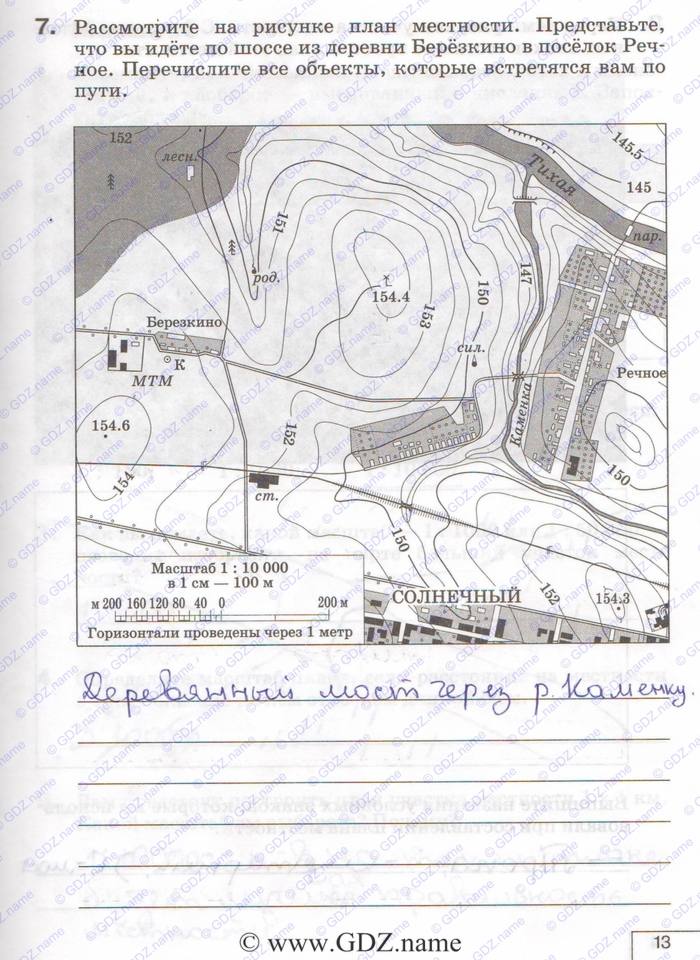 7. Рассмотрите на рисунке план местности. Представьте,
что вы идёте по шоссе из деревни Берёзкино в посёлок Реч-
ное. Перечислите все объекты, которые встретятся вам по
пути.
152
лесн.
Тихая
145.5
145
пар.
151
род.
154.4
150
147
153
Березкино
К
МТМ
сил.
Речное
Каменка
154.6
152
154
ст.
150
150
152
СОЛНЕЧНЫЙ
154.3
Масштаб 1 : 10 000
в 1 см — 100 м
м 200 160 120 80 40 0 200 м
Горизонтали проведены через 1 метр
Деревянный мост через р. Каменку.
13
© www.GDZ.name
© GDZ.name